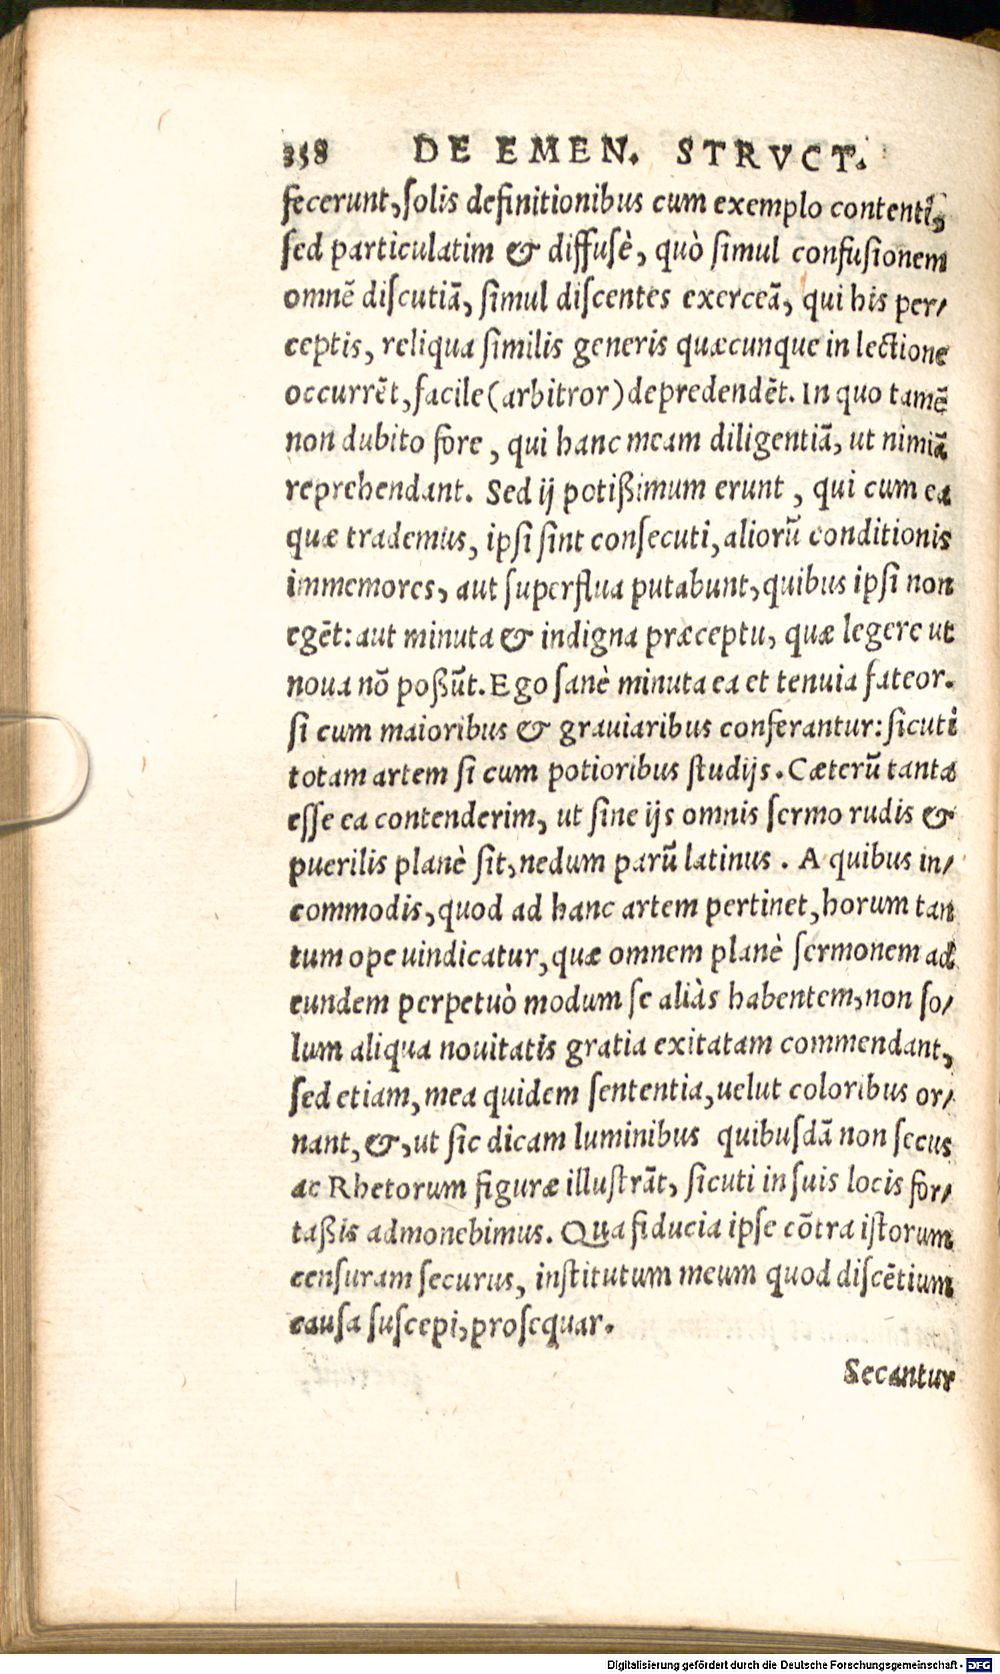 358 DE EMEN. STRVCT.
fecerunt, solis definitionibus cum exemplo contenti,
sed particulatim & diffusè, quò simul confusionem
omnē discutiā, simul discentes exerceā, qui his per/
ceptis, reliqua similis generis quæcunque in lectione
occurrēt, facile (arbitror) depredendēt. In quo tamē
non dubito fore, qui hanc meam diligentiā, ut nimiā
reprehendant. Sed ij potißimum erunt, qui cum ea
quæ trademus, ipsi sint consecuti, aliorū conditionis
immemores, aut superflua putabunt, quibus ipsi non
egēt: aut minuta & indigna præceptu, quæ legere ut
noua nō poßūt. Ego sanè minuta ea et tenuia fateor.
si cum maioribus & grauiaribus conferantur: sicuti
totam artem si cum potioribus studijs. Cæterū tanta
esse ea contenderim, ut sine ijs omnis sermo rudis &
puerilis planè sit, nedum parū latinus. A quibus in/
commodis, quod ad hanc artem pertinet, horum tan
tum ope uindicatur, quæ omnem planè sermonem ad
eundem perpetuò modum se aliàs habentem, non so/
lum aliqua nouitatis gratia exitatam commendant,
sed etiam, mea quidem sententia, uelut coloribus or/
nant, &, ut sic dicam luminibus quibusdā non secus
ac Rhetorum figuræ illustrāt, sicuti in suis locis for/
taßis admonebimus. Qua fiducia ipse cōtra istorum
censuram securus, institutum meum quod discētium
causa suscepi, prosequar.
Secantur
Digitalisierung gefördert durch die Deutsche Forschungsgemeinschaft - DFG